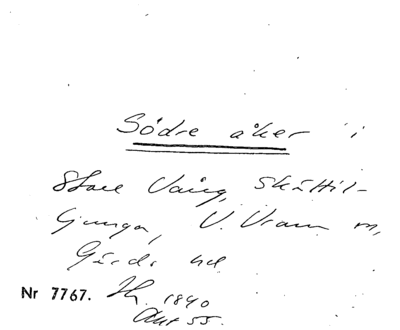 Södre åker i
Stare Vång, Skättil-
Gjunga, V. Vram m,
Gärds hd
Nr 7767. 1840
Akt 55.